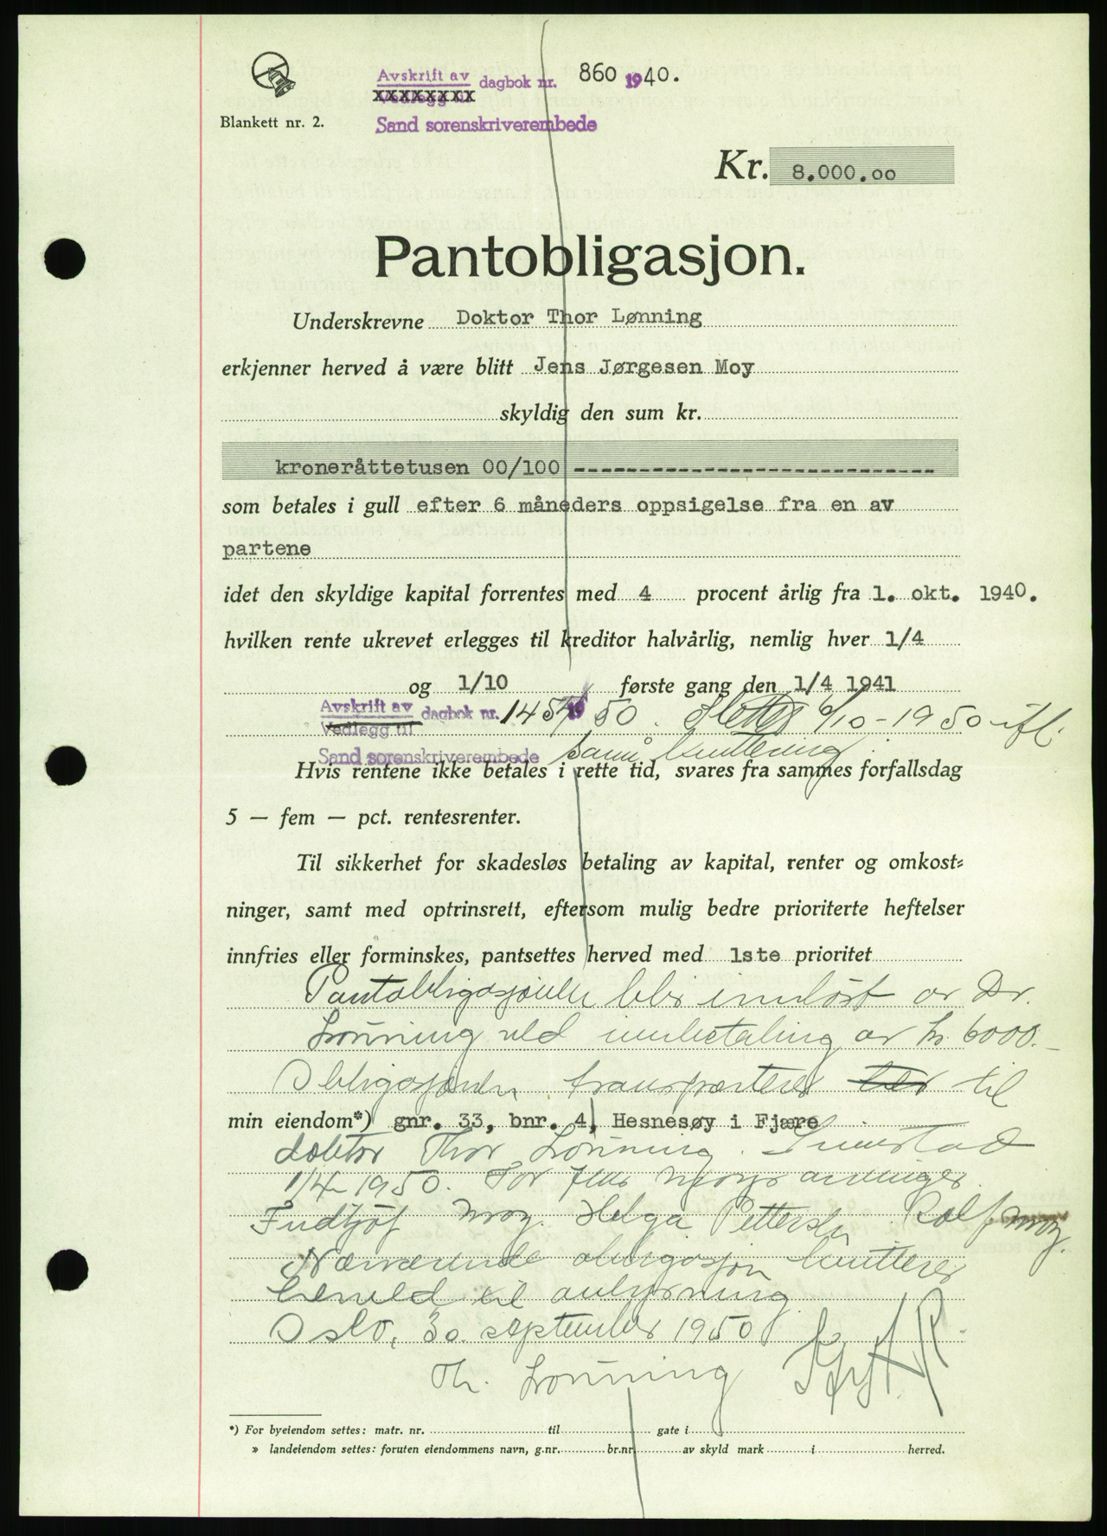 Avskrift av dagbok nr. 860 1940.
Vedlegg til
Sand sorenskriverembede
Blankett nr. 2.
Kr. 8.000.00
Pantobligasjon.
Underskrevne Doktor Thor Lønning
erkjenner herved å være blitt Jens Jørgesen Moy
skyldig den sum kr.
kroneråttetusen 00/100 ----------------------------
som betales i gull efter 6 måneders oppsigelse fra en av
partene
idet den skyldige kapital forrentes med 4 procent årlig fra 1. okt. 1940.
hvilken rente ukrevet erlegges til kreditor halvårlig, nemlig hver 1/4
og 1/10 første gang den 1/4 1941
Avskrift av dagbok nr. 1454 1950. Slettes 6/10-1950 ifl.
Vedlegg til
Sand sorenskriverembede samå kvittering.
Hvis rentene ikke betales i rette tid, svares fra sammes forfallsdag
5 — fem — pct. rentesrenter.
Til sikkerhet for skadesløs betaling av kapital, renter og omkost-
ninger, samt med optrinsrett, eftersom mulig bedre prioriterte heftelser
innfries eller forminskes, pantsettes herved med 1ste prioritet
Pantobligasjonen blir innløst av Dr.
Lønning ved innbetaling av kr. 6000.-
Obligasjonen transporteres her til
min eiendom*) gnr. 33, bnr. 4, Hesnesøy i Fjære
doktor Thor Lønning. Grimstad
1/4-1950. For Jens Moys arvinger.
Fridtjof Moy. Helga Pettersen Rolf Moy.
Nærværende obligasjon kvitteres
herved til avlysning.
Oslo, 30 september 1950
Th. Lønning
*) For byeiendom settes: matr. nr. til gate i
» landeiendom settes: foruten eiendommens navn, g.nr. br.nr. av skyld mark i herred.